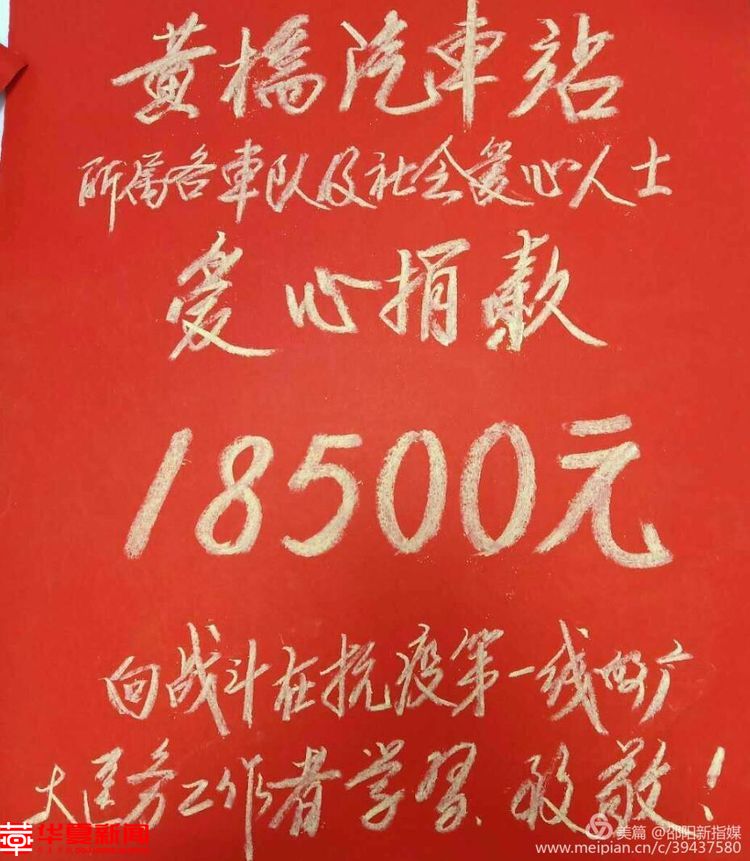 黄橋汽車站
所属各車队及社会爱心人士
爱心捐款
18500元
向战斗在抗疫第一线的广
大医务工作者学習、致敬!
华夏新闻
美篇 @邵阳新指媒
www.meipian.cn/c/39437580